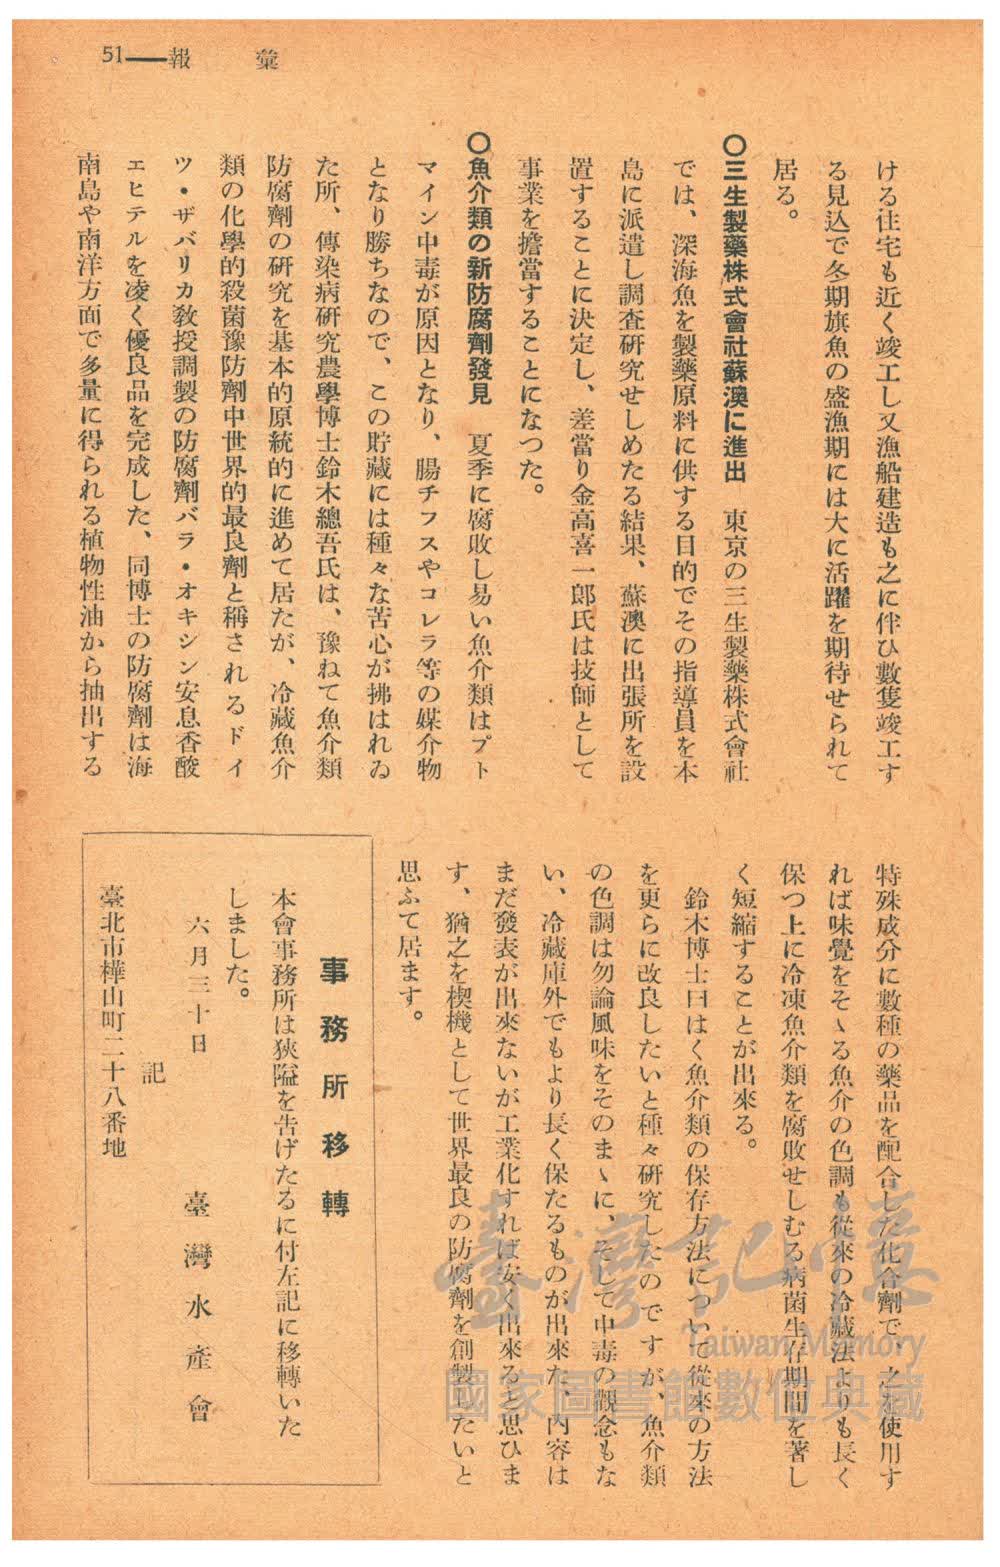 彙報——51
ける住宅も近く竣工し又漁船建造も之に伴ひ數隻竣工す
る見込で冬期旗魚の盛漁期には大に活躍を期待せられて
居る。
〇三生製藥株式會社蘇澳に進出　東京の三生製藥株式會社
では、深海魚を製藥原料に供する目的でその指導員を本
島に派遣し調査研究せしめたる結果、蘇澳に出張所を設
置することに決定し、差當り金高喜一郎氏は技師として
事業を擔當することになつた。
〇魚介類の新防腐劑發見　夏季に腐敗し易い魚介類はプト
マイン中毒が原因となり、腸チフスやコレラ等の媒介物
となり勝ちなので、この貯藏には種々な苦心が拂はれゐ
た所、傳染病研究農學博士鈴木總吾氏は、豫ねて魚介類
防腐劑の研究を基本的原統的に進めて居たが、冷藏魚介
類の化學的殺菌豫防劑中世界的最良劑と稱されるドイ
ツ・ザバリカ敎授調製の防腐劑バラ・オキシン安息香酸
エヒテルを凌く優良品を完成した、同博士の防腐劑は海
南島や南洋方面で多量に得られる植物性油から抽出する
特殊成分に數種の藥品を配合した化合劑で、之を使用す
れば味覺をそゝる魚介の色調も從來の冷藏法よりも長く
保つ上に冷凍魚介類を腐敗せしむる病菌生存期間を著し
く短縮することが出來る。
鈴木博士曰はく魚介類の保存方法について從來の方法
を更らに改良したいと種々研究したのですが、魚介類
の色調は勿論風味をそのまゝに、そして中毒の觀念もな
い、冷藏庫外でもより長く保たるものが出來た、內容は
まだ發表が出來ないが工業化すれば安く出來ると思ひま
す、猶之を楔機として世界最良の防腐劑を創製したいと
思ふて居ます。
事務所移轉
本會事務所は狹隘を吿げたるに付左記に移轉いた
しました。
六月三十日
臺灣水產會
記
臺北市樺山町二十八番地
臺灣記憶
Taiwan Memory
國家圖書館數位典藏